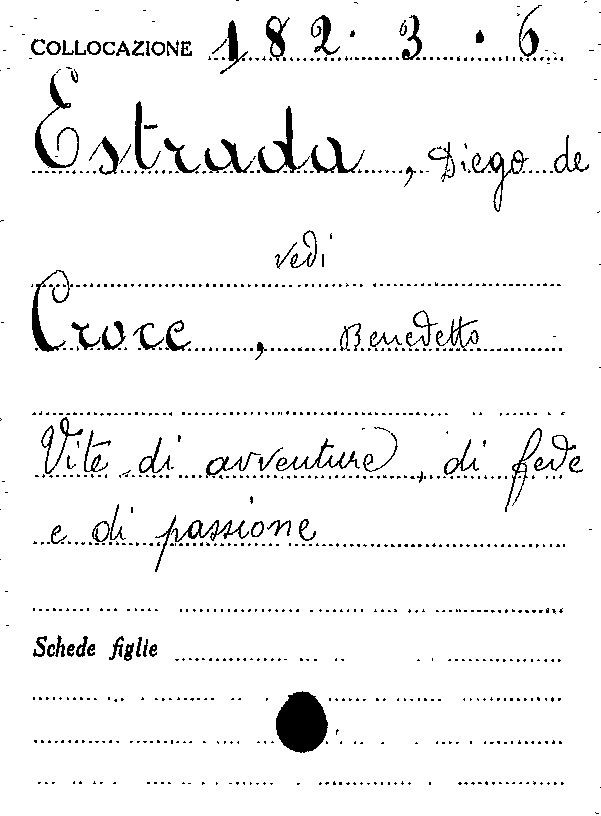 COLLOCAZIONE 182. 3. 6
Estrada, Diego de
vedi
Croce, Benedetto
Vite di avventure, di fede
e di passione
Schede figlie